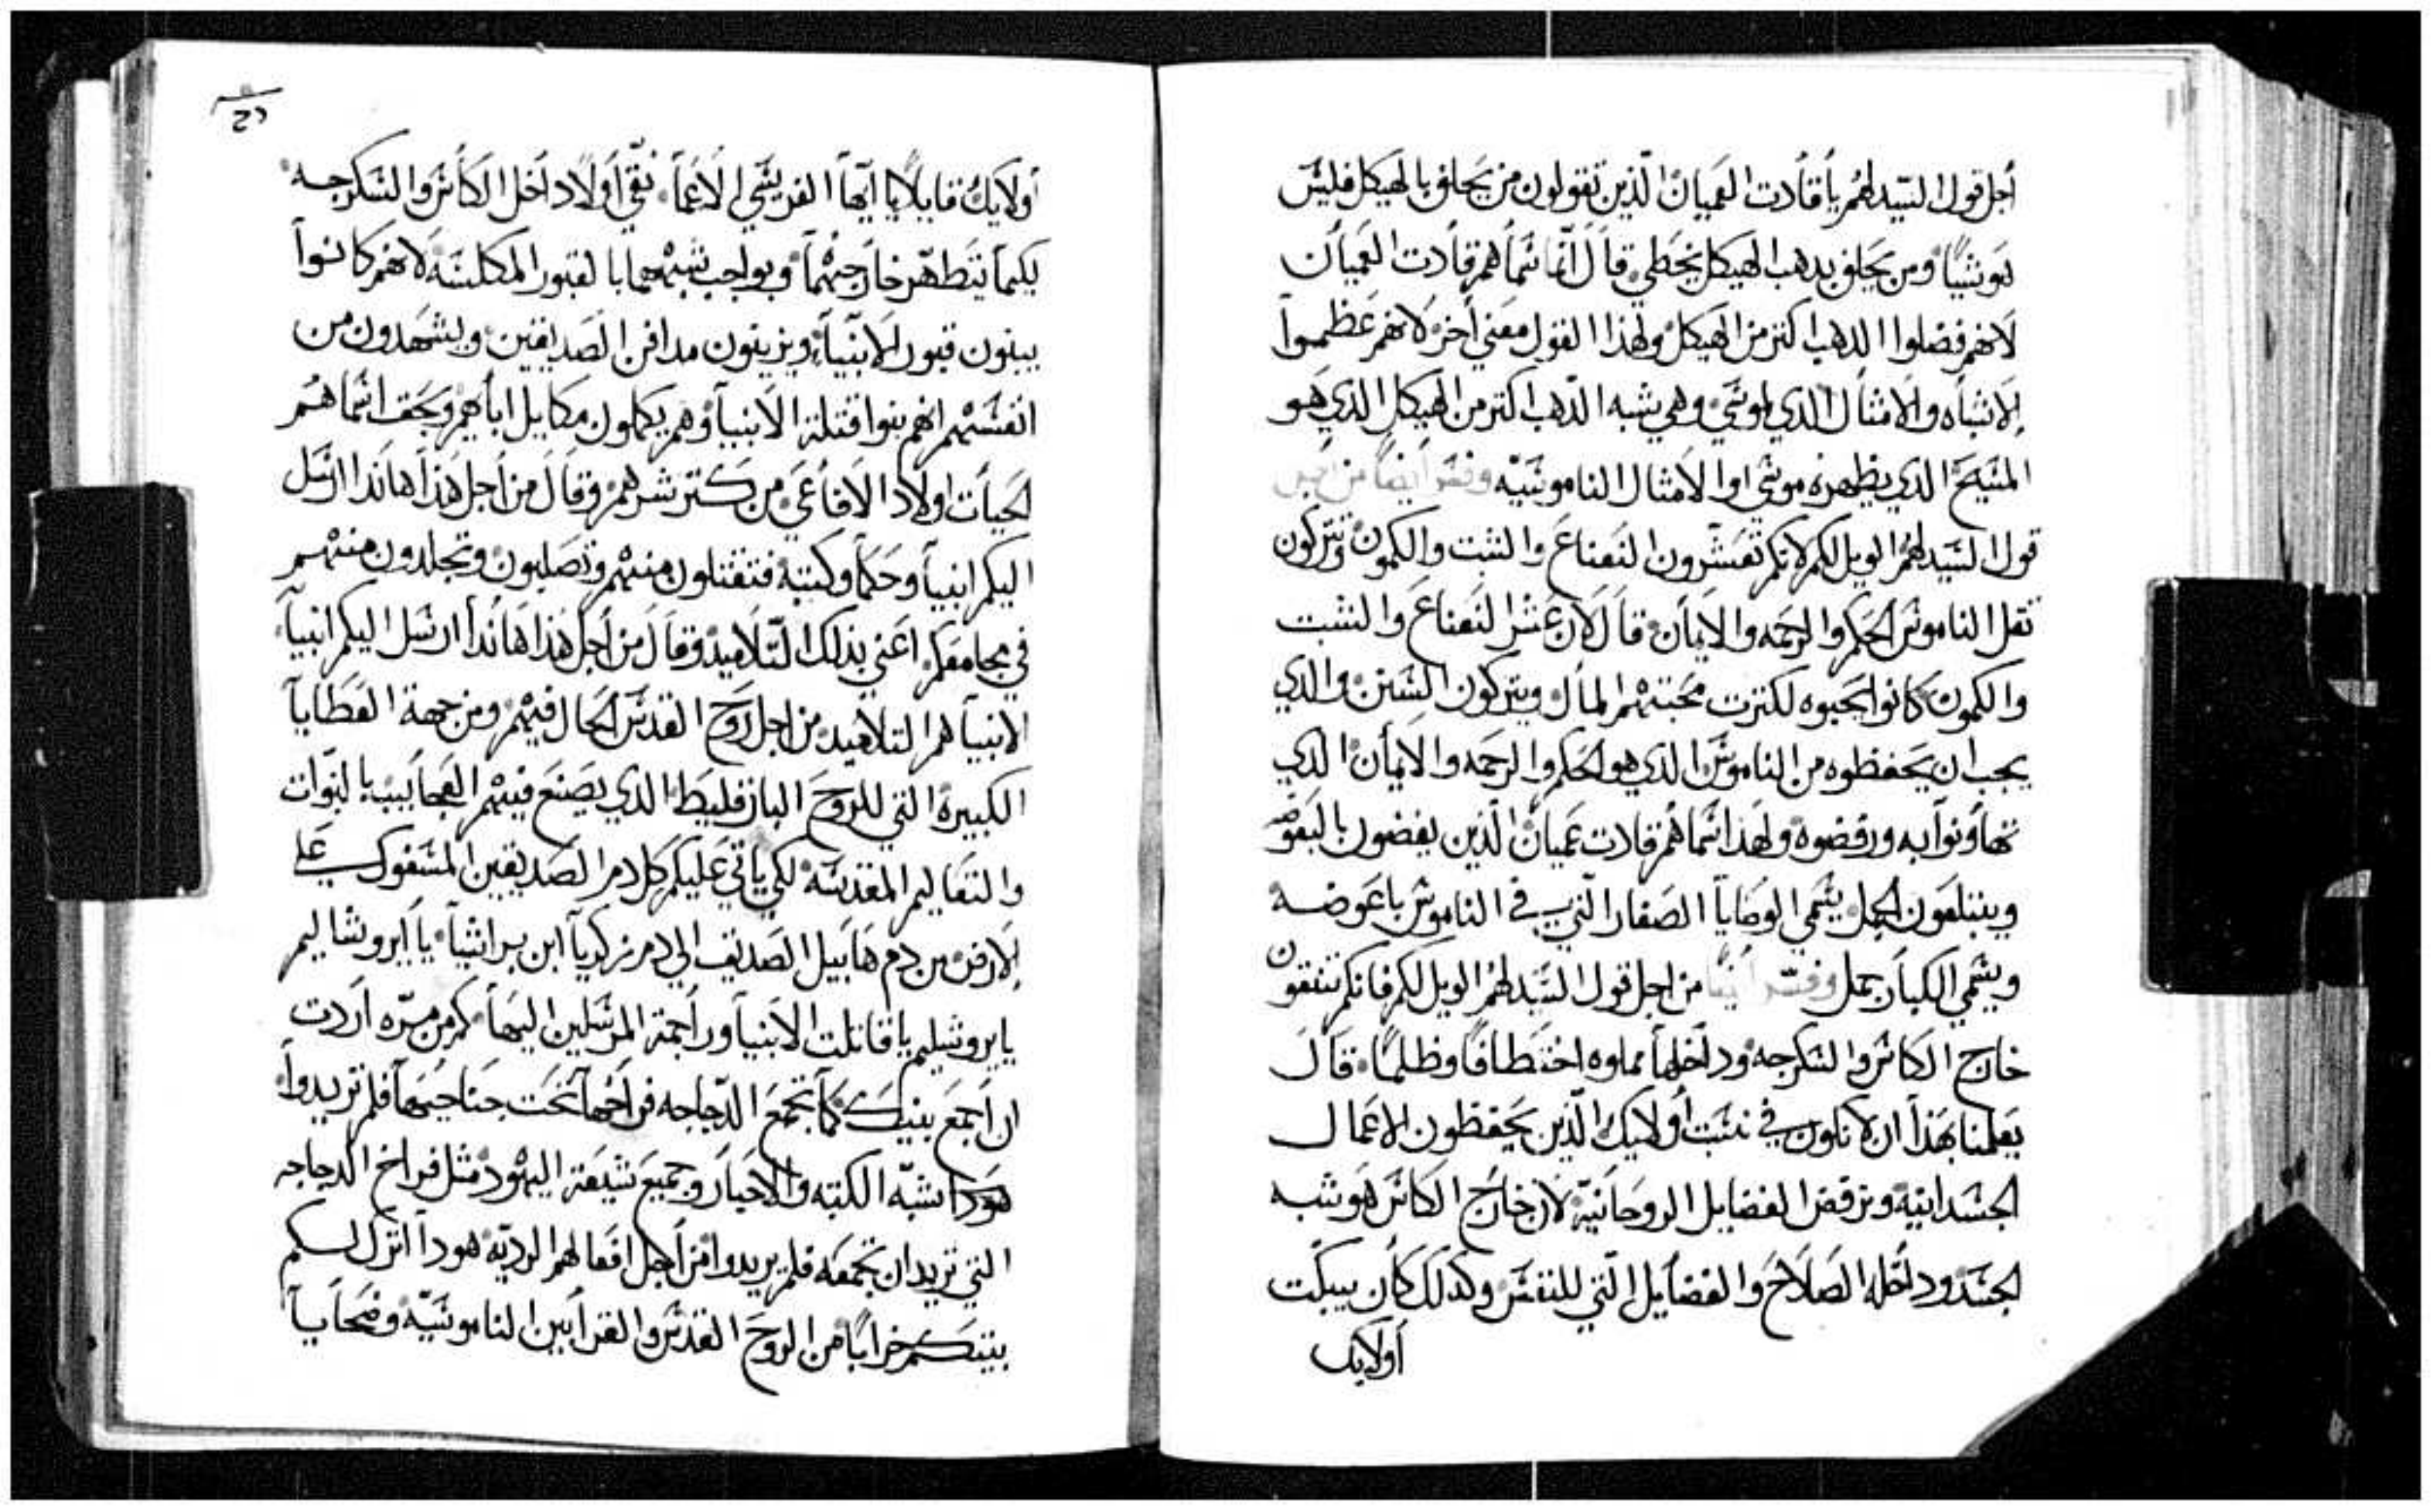 أجل قول السّيد لهُم يا قادت العميان الّذين تقولون من يحلف بالهيكل فليس
هو شيئاً ومن يحلف بدهب الهيكل يخطي قال انّما سُماهم قادت العميان
لانهم فضلوا الدهب اكتر من الهيكل ولهذا القول معني أخر لانهم عظموا
الاشباه والامثال الذي لموسَي وهي شبه الدّهب اكتر من الهيكل الذي هو
المسَيحَ الذي يظهره موسَي او الامثال الناموسَيّه وفسَر أيضاً من اجل
قول السَيد لهُم الويل لكم لانكم تعسَّرون النَعناعَ والشبت والكمون وتتركون
تقل الناموسَ الحَكم والرحَمه والايمان قال لان عَشر النَعناعَ والشبت
والكمون كانوا يحَبوه لكترت محَبتهُم للمال ويتركون السَنن والذي
يجب ان يحَفظوه من الناموسَ الذي هو الحَكم والرحَمه والايمان الذي
تهاونوا به ورفضوه ولهذا سَماهُم قادت عَميان الّذين يعضون بالبعَوضه
ويبتلعَون الجمل يسَمي الوصَايا الصَغار الّتي في الناموسَ باعَوضه
ويسَمي الكبار جمل وفسّر أيضاً من اجل قول السَيّد لهُم الويل لكم فانكم تنقون
خارج الكاسَ والسَكرجه وداخلها مملوه اختطافاً وظلماً قال
يعَلمنا بهَذا ان لا نكون في نسَبت أولايك الّذين يحَفظون الاعَمال
الجسَدانيّه ونرفض الفضايل الروحَانيّه لان خارج الكاسَ هو شبه
الجسَد وداخله الصَلاحَ والفضايل الّتي للنفسَ وكذلك كان يبكّت
أولايك
أولايك قايلاً يا أيّها الفريسَي الأعَما نقّي أولاً داخل الكاسَ والسَكرجه
ليكما يتَطهّر خارجهُما وبواجب شبّههما بالقبور المكلسَه لانهم كانوا
يبنون قبور الانبياء ويزينون مدافن الصَديقين ويشهَدون من
انفسَهم انهم بنوا قتلة الانبيا وهم يكملون مكاييل اباهم وبحَق انّما هُم
الحيات اولاد الافاعَي من كتر شرهم وقال من أجل هَذا هانذا ارسَل
اليكم انبيا وحَكما وكتبه فتقتلون منهُم وتصَلبون وتجلدون منهُم
في مجامعَكم اعَني بذلك التّلاميذ وقال من أجل هَذا هَانذا ارسَل اليكم انبيا
الانبيا هم التلاميد من اجل روحَ القدسَ الحَال فيهُم ومن جهة العَطايا
الكبيره التي للروحَ البارقليطَ الذي يصَنعَ فيهُم العَجايب بالنبوّات
والتعَاليم المقدسَه لكي ياتي عَليكم كل دم الصَديقين المسَفوك علي
الارض من دم هَابيل الصَديق الي دم زكريا ابن براشيا يا ايروشاليم
يا يروشليم يا قاتلت الانبيا وراجمة المرسَلين اليهَا كم من مرّه أردت
ان أجمعَ بنيك كما تجمعَ الدّجاجه فراخها تحَت جناحَيهَا فلم تريدوا
هَودا شبّه الكتبه والاحبار وجميعَ شيعَة اليهُود مثل فراخ الدجاجه
التي تريد ان تجمعَه فلم يريدوا من أجل افعَالهم الرديّه هودا اترك لكم
بيتكم خراباً من الروحَ القدسَ والقرابين الناموسَيّه وضحَايا